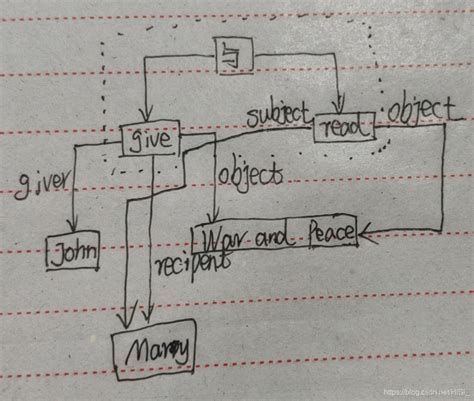 与
subject
read
object
give
giver
object
John
War and Peace
recipent
Marry
https://blog.csdn.net/